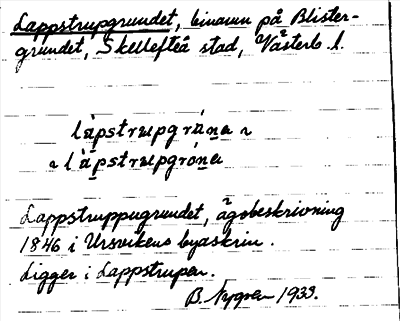 Lappstrupgrundet, binamn på Blister-
grundet, Skellefteå stad, Västerb. l.
låpstrupgrúna ~
~ låpstrupgróna
Lappstruppugrundet, ägobeskrivning
1846 i Ursvikens byaskrin.
Ligger i Lappstrupen.
B. Nygren 1933.